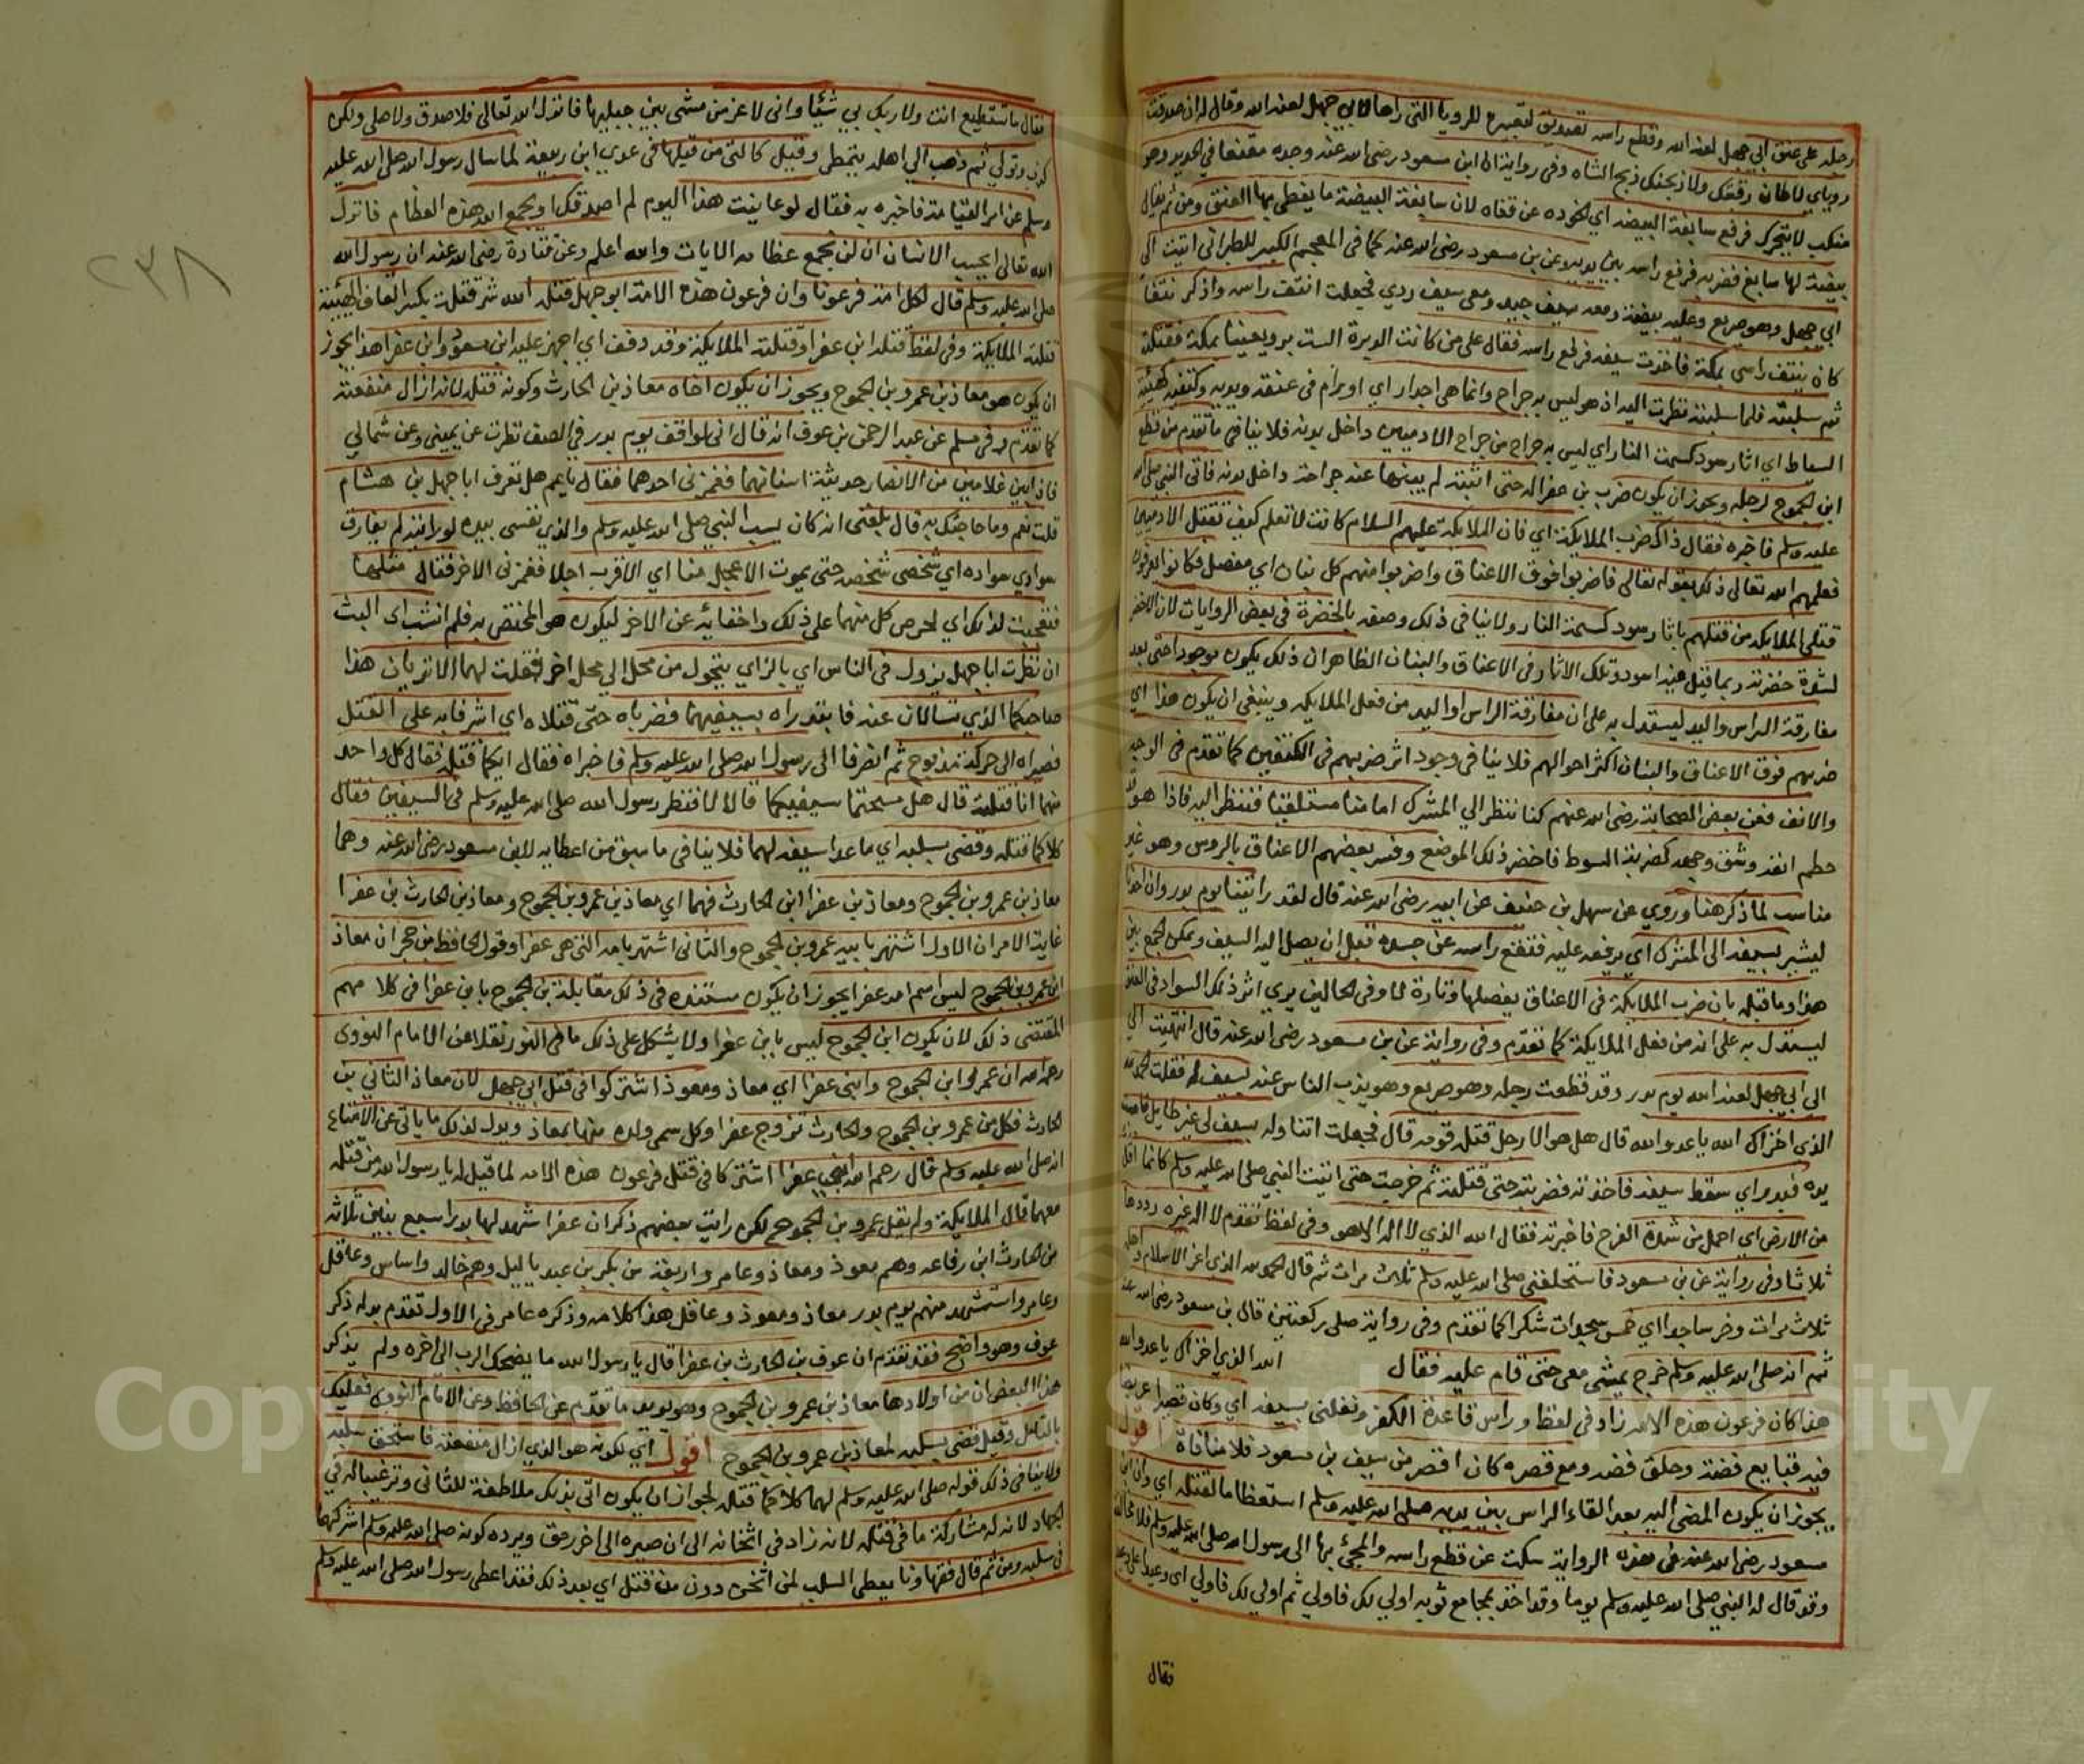 ورجله على عنق ابي جهل لعنه الله وقطع راسه تصديق لتعبيره للرويا التي راها لابي جهل لعنه الله وقال له ان صدقت
روياي لاطان رقبتك ولاذبحنك ذبح الشاه وفي رواية ان ابن مسعود رضي الله عنه وجده مقنعا في الحديد وهو
منكب لا يتحرك فرفع سابغة البيضة اي الخوده عن قفاه لان سابغة البيضة ما يغطي بها العنق ومن ثم يقال
بيضة لها سابغ فضربه فوقع راسه بين يديه وعن بن مسعود رضي الله عنه كما في المعجم الكبير للطبراني اتيت الى
ابي جهل وهو صريع وعليه بيضة ومعه سيف جيد ومعي سيف ردي فجعلت انتف راسه واذكر نتفا
كان ينتف راسي بمكة فاخذت سيفه فرفع راسه فقال على من كانت الدبرة الست برويعينا بمكة فقتلته
ثم سلبته فلما سلبته نظرت اليه اذ هو ليس به جراح وانما هي احدار اي اورام في عنقه ويديه وكتفيه كهيئة
السياط اي اثار سود كسمت النار اي ليس به جراح من جراح الادميين داخل بدنه فلا ينافي ما تقدم من قطع
ابن الجموح لرجله ويجوز ان يكون ضرب بن عفرا له حتى اثبته لم ينشا عنه جراحة داخل بدنه فاتى النبي صلى الله
عليه وسلم فاخبره فقال ذاك ضرب الملايكة اي فان الملايكة عليهم السلام كانت لا تعلم كيف تقتل الادميين
فعلمهم الله تعالى ذلك بقوله تعالى فاضربوا فوق الاعناق واضربوا منهم كل بنان اي مفصل فكانوا يعرفون
قتلى الملايكه من قتلهم باثار سود كسمة النار ولا ينافي ذلك وصفه بالخضرة في بعض الروايات لان الاخضر
لشدة خضرته ربما قيل فيه اسود وتلك الاثار في الاعناق والبنان الظاهر ان ذلك يكون موجودا حتى بعد
مفارقة الراس واليد ليستدل به على ان مفارقة الراس او اليد من فعل الملايكه وينبغي ان يكون هذا اي
ضربهم فوق الاعناق والبنان اكثر احوالهم فلا ينافي وجود اثر ضربهم في الكتفين كما تقدم في الوجه
والانف فعن بعض الصحابة رضي الله عنهم كنا ننظر الى المشرك امامنا مستلقيا فننظر اليه فاذا هو قد
حطم انفه وشق وجهه كضربة السوط فاخضر ذلك الموضع وفسر بعضهم الاعناق بالروس وهو غير
مناسب لما ذكر هنا وروي عن سهل بن حنيف عن ابيه رضي الله عنه قال لقد رايتنا يوم بدر وان احدنا
ليشير بسيفه الى المشرك اي يرفعه عليه فتقع راسه عن جسده قبل ان يصل اليه السيف ويمكن الجمع بين
هذا وما قبله بان ضرب الملايكة في الاعناق يفصلها وتارة لا وفي الحالين يرى اثر ذلك السواد في العنق
ليستدل به على انه من فعل الملايكة كما تقدم وفي رواية عن بن مسعود رضي الله عنه قال انتهيت الى
الى ابي جهل لعنه الله يوم بدر وقد قطعت رجله وهو صريع وهو يذب الناس عنه بسيف له فقلت الحمد لله
الذي اخزاك الله يا عدو الله قال هل هو الا رجل قتله قومه قال فجعلت اتناوله بسيف لي غير طايل فاصبت
يده فبدر اي سقط سيفه فاخذته فضربته حتى قتلته ثم خرجت حتى اتيت النبي صلى الله عليه وسلم كانما اقل
من الارض اي احمل من شدة الفرح فاخبرته فقال الله الذي لا اله الا هو وفي لفظ تقدم لا اله غيره رددها
ثلاثا وفي رواية عن بن مسعود فاستحلفني صلى الله عليه وسلم ثلاث مرات ثم قال الحمد لله الذي اعز الاسلام واهله
ثلاث مرات وخر ساجدا اي خمس سجدات شكرا كما تقدم وفي رواية صلى ركعتين قال بن مسعود رضي الله عنه
ثم انه صلى الله عليه وسلم خرج يمشي معي حتى قام عليه فقال الله الذي اخزاك يا عدو الله
هذا كان فرعون هذه الامه زاد في لفظ وراس قاعدة الكفر ونفلني بسيفه اي وكان قصيرا عريضا
فيه قبايع فضة وحلق فضه ومع قصره كان اقصر من سيف بن مسعود فلا منافاة اقول
يجوز ان يكون المضي اليه بعد القاء الراس بين يديه صلى الله عليه وسلم استعظاما لقتله اي وان ابن
مسعود رضي الله عنه في هذه الرواية سكت عن قطع راسه والمجئ بها الى رسول الله صلى الله عليه وسلم فلا مخالفة
وقد قال له النبي صلى الله عليه وسلم يوما وقد اخذ بمجامع ثوبه اولى لك فاولى ثم اولى لك فاولى اي وعيدا على وعيد
فقال
٢٣٨
فقال ما تستطيع انت ولا ربك بي شيئا واني لاعز من مشى بين جبليها فانزل الله تعالى فلا صدق ولا صلى ولكن
كذب وتولى ثم ذهب الى اهله يتمطى وقيل كالتي من قبلها في عدي ابن ربيعة لما سال رسول الله صلى الله عليه
وسلم عن امر القيامة فاخبره به فقال لو عاينت هذا اليوم لم اصدقك او يجمع الله هذه العظام فانزل
الله تعالى ايحسب الانسان ان لن نجمع عظامه الايات والله اعلم وعن قتادة رضي الله عنه ان رسول الله
صلى الله عليه وسلم قال لكل امة فرعونا وان فرعون هذه الامة ابو جهل قتله الله شر قتلة بكسر القاف الهيئة
قتلته الملايكة وفي لفظ قتله ابن عفرا وقتلته الملايكة وقد دفف اي اجهز عليه ابن مسعود وابن عفرا هذا يجوز
ان يكون هو معاذ بن عمرو بن الجموح ويجوز ان يكون اخاه معاذ بن الحارث وكونه قتله لانه ازال منفعته
كما تقدم وفي مسلم عن عبد الرحمن بن عوف انه قال اني لواقف يوم بدر في الصف نظرت عن يميني وعن شمالي
فاذا بين غلامين من الانصار حديثة اسنانهما فغمزني احدهما فقال يا عم هل تعرف ابا جهل بن هشام
قلت نعم وما حاجتك به قال بلغني انه كان يسب النبي صلى الله عليه وسلم والذي نفسي بيده لو رايته لم يفارق
سوادي سواده اي شخصي شخصه حتى يموت الاعجل منا اي الاقرب اجلا فغمزني الاخر فقال مثلها
فتعجبت لذلك اي لحرص كل منهما على ذلك واخفايه عن الاخر ليكون هو المختص به فلم انشب اي البث
ان نظرت ابا جهل يزول في الناس اي بالزاي يتحول من محل الى محل اخر فقلت لهما الا تريان هذا
صاحبكما الذي تسالان عنه فابتدراه بسيفيهما فضرباه حتى قتلاه اي اشرفا به على القتل
فصيراه الى حركة مذبوح ثم انصرفا الى رسول الله صلى الله عليه وسلم فاخبراه فقال ايكما قتله فقال كل واحد
منهما انا قتلته قال هل مسحتما سيفيكما قالا لا فنظر رسول الله صلى الله عليه وسلم في السيفين فقال
كلاكما قتله وقضى بسلبه اي ما عدا سيفه لهما فلا ينافي ما سبق من اعطايه لابن مسعود رضي الله عنه وهما
معاذ بن عمرو بن الجموح ومعاذ بن عفرا ابن الحارث فهما اي معاذ بن عمرو بن الجموح ومعاذ بن الحارث بن عفرا
غاية الامر ان الاول اشتهر بابيه عمرو بن الجموح والثاني اشتهر بامه التي هي عفرا وقول الحافظ بن حجر ان معاذ
ابن عمرو بن الجموح ليس اسم امه عفرا يجوز ان يكون مستنده في ذلك مقابلة بن الجموح بابن عفرا في كلامهم
المقتضي ذلك لان يكون ابن الجموح ليس بابن عفرا ولا يشكل على ذلك ما في النور نقلا عن الامام النووي
رحمه الله ان عمرو ابن الجموح وابنى عفرا اي معاذ ومعوذ اشتركوا في قتل ابي جهل لان معاذ الثاني بن
الحارث فكل من عمرو بن الجموح والحارث تزوج عفرا وكل سمى ولده منها بمعاذ ويدل لذلك ما ياتي عن الامتاع
انه صلى الله عليه وسلم قال رحم الله ابني عفرا اشتركا في قتل فرعون هذه الامه لما قيل له يا رسول الله من قتله
معهما قال الملايكة ولم يقل عمرو بن الجموح لكن رايت بعضهم ذكر ان عفرا شهد لها بدرا سبع بنين ثلاثة
من الحارث ابن رفاعه وهم معوذ ومعاذ وعامر واربعة من بكر بن عبد ياليل وهم خالد واساس وعاقل
وعامر واستشهد منهم يوم بدر معاذ ومعوذ وعاقل هذا كلامه وذكره عامر في الاول تقدم بدله ذكر
عوف وهو واضح فقد تقدم ان عوف بن الحارث بن عفرا قال يا رسول الله ما يضحك الرب الى اخره ولم يذكر
هذا البعض ان من اولادها معاذ بن عمرو بن الجموح وهو يويد ما تقدم عن الحافظ وعن الامام النووي فعليك
بالتامل وقيل قضى بسلبه لمعاذ بن عمرو بن الجموح اقول اي لكونه هو الذي ازال منفعته فاستحق سلبه
ولا ينافي ذلك قوله صلى الله عليه وسلم لهما كلاكما قتله لجواز ان يكون اتى بذلك ملاطفة للثاني وترغيبا له في
الجهاد لانه له مشاركة ما في قتله لانه زاد في اثخانه الى ان صيره الى اخر رمق ويرده كونه صلى الله عليه وسلم اشركهما
في سلبه ومن ثم قال فقهاونا يعطى السلب لمن اثخن دون من قتل اي بعد ذلك فقد اعطى رسول الله صلى الله عليه وسلم
Copyright © King Saud University